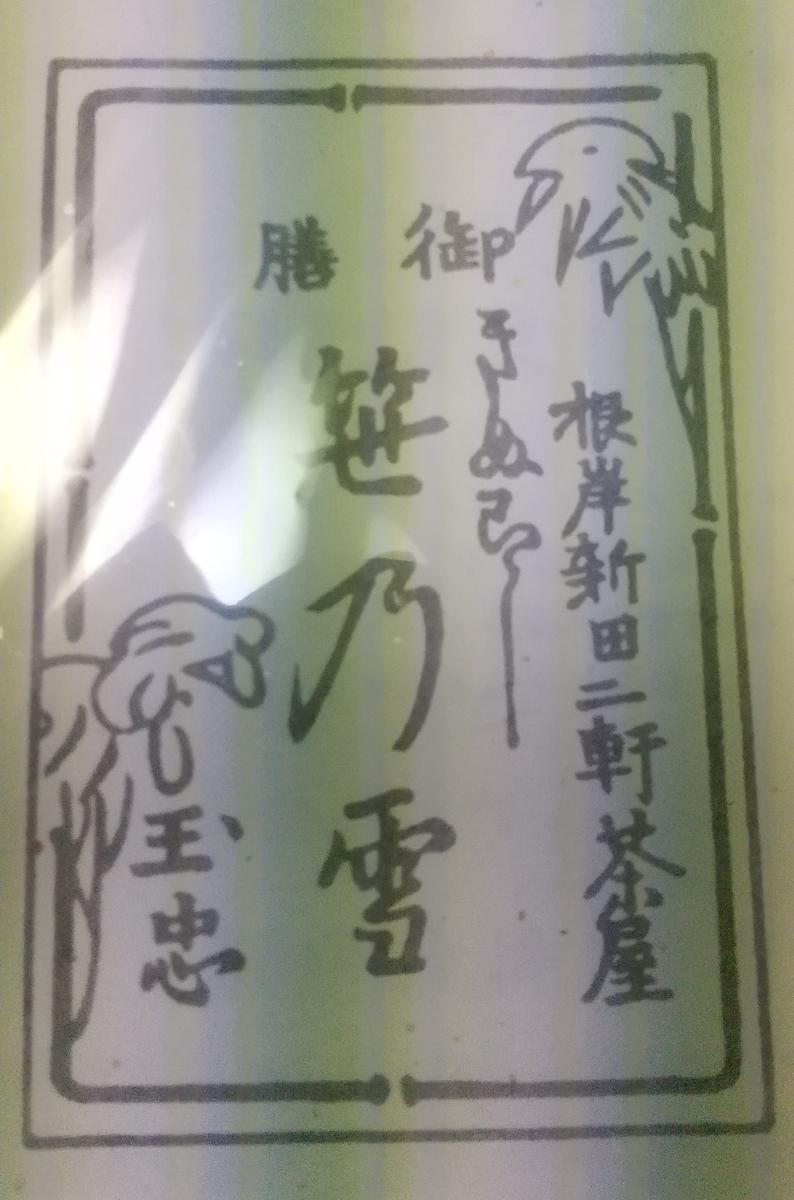 根岸新田二軒茶屋
御膳
きぬこし
笹乃雪
玉忠